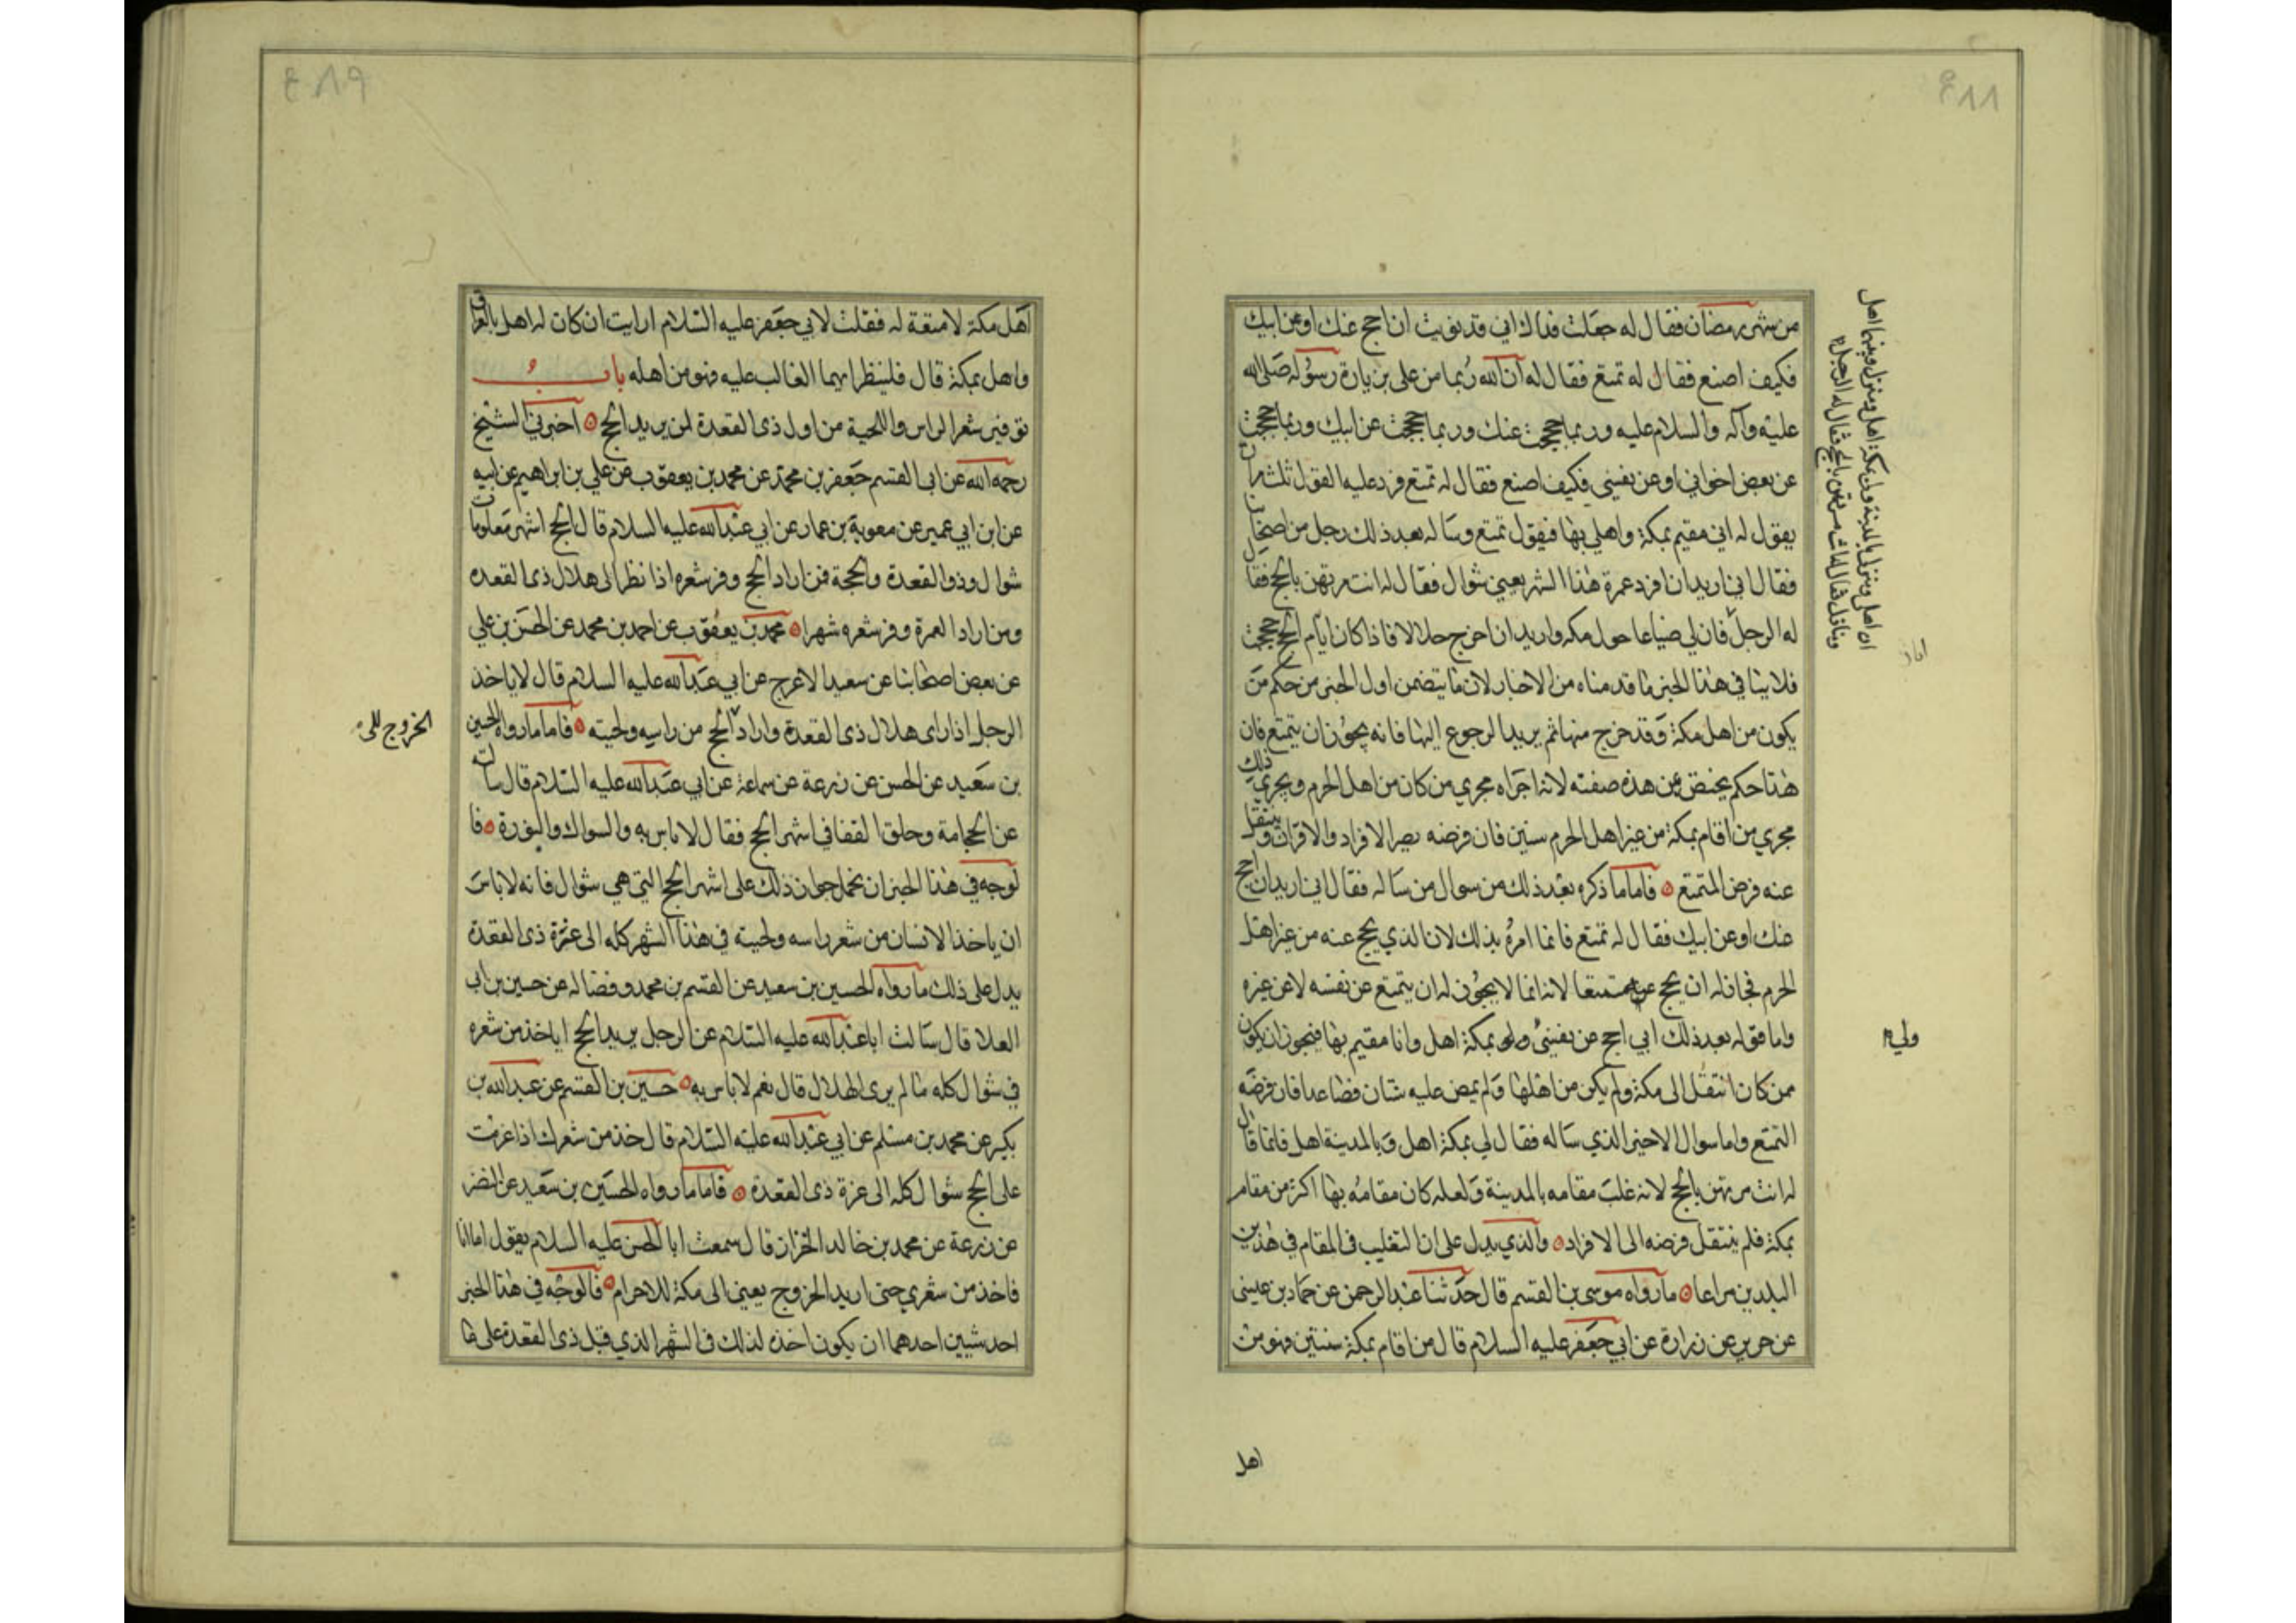 من شهر رمضان فقال له جعلت فداك اني قد نويت ان احج عنك او عن ابيك
فكيف اصنع فقال له تمتع فقال له ان الله ربما من علي بزيارة رسوله صلى الله
عليه وآله والسلام عليه وربما حججت عنك وربما حججت عن ابيك وربما حججت
عن بعض اخواني او عن نفسي فكيف اصنع فقال له تمتع فرد عليه القول ثلث مرات
يقول له اني مقيم بمكة واهلي بها فيقول تمتع وساله بعد ذلك رجل من اصحابنا
فقال اني اريد ان افرد عمرة هذا الشهر يعني شوال فقال له انت مرتهن بالحج فقال
له الرجل فان لي ضياعا حول مكه واريد ان اخرج حلالا فاذا كان ايام الحج حججت
فلا ينافي هذا الخبر ما قدمناه من الاخبار لان ما يتضمن اول الخبر من حكم من
يكون من اهل مكة وقد خرج منها ثم يريد الرجوع اليها فانه يجوز ان يتمتع فان
هذا حكم يختص من هذه صفته لانه اجراه مجري من كان من اهل الحرم ويجري ذلك
مجري من اقام بمكة من غير اهل الحرم سنين فان فرضه يصير الافراد والاقران وينتقل
عنه فرض المتمتع فاما ما ذكره بعد ذلك من سوال من ساله فقال اني اريد ان احج
عنك او عن ابيك فقال له تمتع فانما امره بذلك لان الذي يحج عنه من غير اهل
الحرم فجاز له ان يحج عنه متمتعا لانه انما لا يجوز له ان يتمتع عن نفسه لا عن غيره
واما قوله بعد ذلك اني احج عن نفسي ولي بمكة اهل وانا مقيم بها فيجوز ان يكون
ممن كان انتقل الى مكة ولم يكن من اهلها ولم يمض عليه سنتان فصاعدا فان فرضه
التمتع واما سوال الاخير الذي ساله فقال لي بمكة اهل وبالمدينة اهل فانما قال
له انت مرتهن بالحج لانه غلب مقامه بالمدينة ولعله كان مقامه بها اكثر من مقامه
بمكة فلم ينتقل فرضه الى الافراد والذي يدل على ان التغليب في المقام في هذين
البلدين مراعا ما رواه موسى بن القسم قال حدثنا عبد الرحمن عن حماد بن عيسى
عن حريز عن زرارة عن ابي جعفر عليه السلام قال من اقام بمكة سنتين فهو من
اهل
ان اهلي ومنزلي بالمدينة ولي بمكة اهل ومنزل وبينهما اهل
ومنازل فقال له انت مرتهن بالحج فقال له الرجل
ولي
اهل مكة لا متعة له فقلت لابي جعفر عليه السلام ارايت ان كان له اهل بالعراق
واهل بمكة قال فلينظر ايهما الغالب عليه فهو من اهله باب
توفير شعر الراس واللحية من اول ذى القعدة لمن يريد الحج اخبرني الشيخ
رحمه الله عن ابي القسم جعفر بن محمد عن محمد بن يعقوب عن علي بن ابراهيم عن ابيه
عن ابن ابي عمير عن معوية بن عمار عن ابي عبد الله عليه السلام قال الحج اشهر معلومات
شوال وذو القعدة والحجة فمن اراد الحج وفر شعره اذا نظر الى هلال ذى القعده
ومن اراد العمرة وفر شعره شهرا محمد بن يعقوب عن احمد بن محمد عن الحسن بن علي
عن بعض اصحابنا عن سعيد الاعرج عن ابي عبد الله عليه السلام قال لا ياخذ
الرجل اذا راى هلال ذى القعدة واراد الحج من راسه ولحيته فاما ما رواه الحسين
بن سعيد عن الحسن عن زرعة عن سماعة عن ابي عبد الله عليه السلام قال سالته
عن الحجامة وحلق القفا في اشهر الحج فقال لا باس به والسواك والنورة فا
لوجه في هذا الخبر ان نحمل جواز ذلك على اشهر الحج التي هي شوال فانه لا باس
ان ياخذ الانسان من شعر راسه ولحيته في هذا الشهر كله الى غرة ذى القعدة
يدل على ذلك ما رواه الحسين بن سعيد عن القسم بن محمد وفضاله عن حسين بن ابي
العلا قال سالت ابا عبد الله عليه السلام عن الرجل يريد الحج اياخذ من شعره
في شوال كله ما لم يرى الهلال قال نعم لا باس به حسين بن القسم عن عبد الله بن
بكير عن محمد بن مسلم عن ابي عبد الله عليه السلام قال خذ من شعرك اذا عزمت
على الحج شوال كله الى غرة ذى القعدة فاما ما رواه الحسين بن سعيد عن النضر
عن زرعة عن محمد بن خالد الخزاز قال سمعت ابا الحسن عليه السلام يقول اما انا
فاخذ من شعري حتى اريد الخروج يعني الى مكة للاحرام فالوجه في هذا الخبر
احد شيين احدهما ان يكون اخذه لذلك في الشهر الذي قبل ذى القعدة على ما